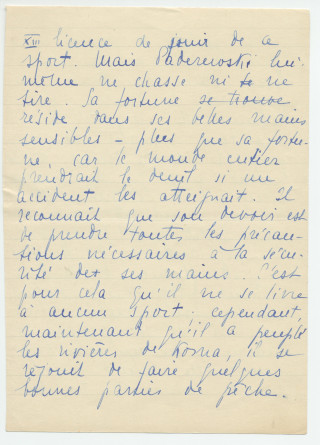 XIII licence de jouir de ce
sport. Mais Paderewski lui-
même ne chasse ni ne
tire. Sa fortune se trouve
réside dans ses belles mains
sensibles - plus que sa fortu-
ne, car le monde entier
prendrait le deuil si un
accident les atteignait. Il
reconnait que son devoir est
de prendre toutes les précau-
tions nécessaires à la sécu-
rité de ses mains. C'est
pour cela qu'il ne se livre
à aucun sport; cependant,
maintenant qu'il a peuplé
les rivières de Kosna, il se
réjouit de faire quelques
bonnes parties de pêche.